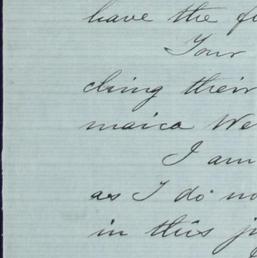 have the
Your
ching their
maica We
I am
as I do no
in this